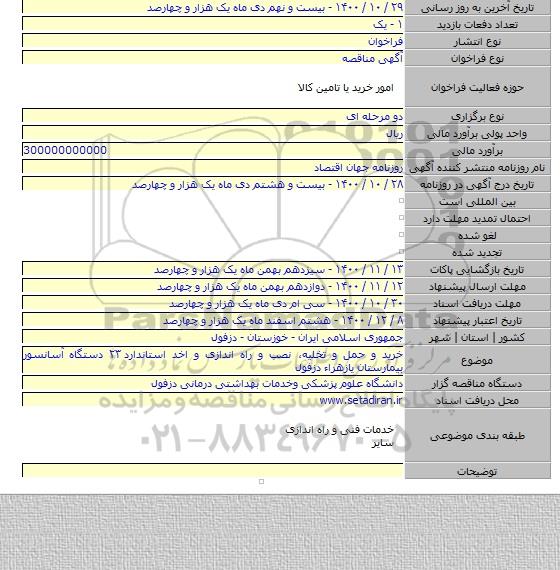 تاریخ آخرین به روز رسانی ۲۹ / ۱۰ / ۱۴۰۰ - بیست و نهم دی ماه یک هزار و چهارصد
تعداد دفعات بازدید ۱ - یک
نوع انتشار فراخوان
نوع فراخوان آگهی مناقصه
حوزه فعالیت فراخوان امور خرید یا تامین کالا
نوع برگزاری دو مرحله ای
واحد پولی برآورد مالی ریال
برآورد مالی 300000000000
نام روزنامه منتشر کننده آگهی روزنامه جهان اقتصاد
تاریخ درج آگهی در روزنامه ۲۸ / ۱۰ / ۱۴۰۰ - بیست و هشتم دی ماه یک هزار و چهارصد
بین المللی است
احتمال تمدید مهلت دارد
لغو شده
تجدید شده
تاریخ بازگشایی پاکات ۱۳ / ۱۱ / ۱۴۰۰ - سیزدهم بهمن ماه یک هزار و چهارصد
مهلت ارسال پیشنهاد ۱۲ / ۱۱ / ۱۴۰۰ - دوازدهم بهمن ماه یک هزار و چهارصد
مهلت دریافت اسناد ۳۰ / ۱۰ / ۱۴۰۰ - سی ام دی ماه یک هزار و چهارصد
تاریخ اعتبار پیشنهاد ۸ / ۱۲ / ۱۴۰۰ - هشتم اسفند ماه یک هزار و چهارصد
کشور | استان | شهر جمهوری اسلامی ایران - خوزستان - دزفول
موضوع خرید و حمل و تخلیه، نصب و راه اندازی و اخذ استاندارد ۲۳ دستگاه آسانسور
بیمارستان یازهراء دزفول
دستگاه مناقصه گزار دانشگاه علوم پزشکی وخدمات بهداشتی درمانی دزفول
محل دریافت اسناد www.setadiran.ir
طبقه بندی موضوعی خدمات فنی و راه اندازی
سایر
توضیحات
۰۲۱-۸۸۳۴۹۶۷۰-۵